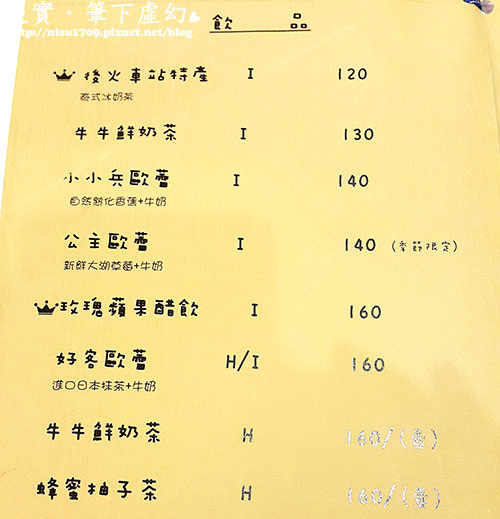 實・筆下虛幻
http://nisu1709.pixnet.net/blog
飲 品
後火車站特產 I 120
泰式冰奶茶
牛牛鮮奶茶 I 130
小小兵歐蕾 I 140
自然熟化香蕉+牛奶
公主歐蕾 I 140 (季節限定)
新鮮大湖草莓+牛奶
玫瑰蘋果醋飲 I 160
好客歐蕾 H/I 160
進口日本抹茶+牛奶
牛牛鮮奶茶 H 160/(壺)
蜂蜜柚子茶 H 160/(壺)